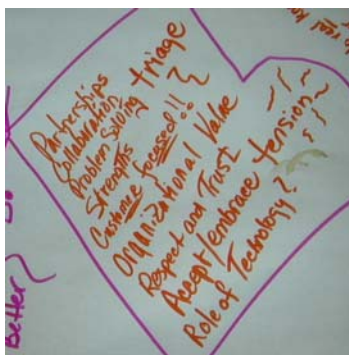 Partnerships
Collaboration
Problem Solving triage
Strengths
Customer focused!!
Organizational Value
Respect and Trust
Accept/embrace tension
Role of Technology?
better